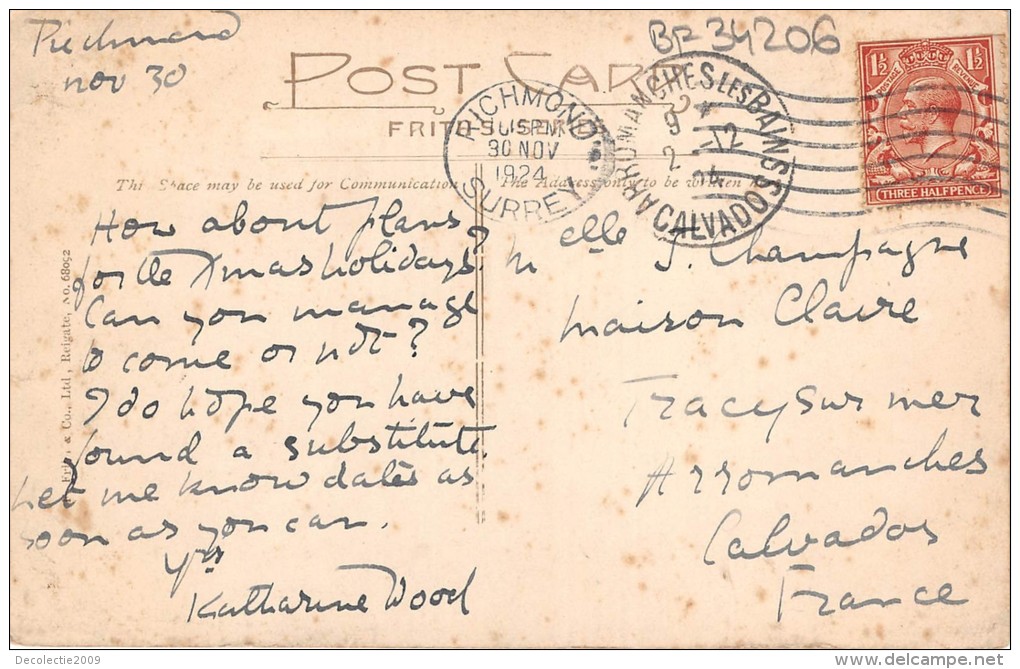 Richmond
nov 30
BF 34206
POST CARD
FRITH'S SERIES
RICHMOND
30 NOV
1924
SURREY
ARROMANCHES LES BAINS
CALVADOS
1½ 1½
POSTAGE REVENUE
THREE HALFPENCE
This Space may be used for Communication
The Address only to be written
How about plans
for the Xmas holidays?
Can you manage
to come or not?
I do hope you have
found a substitute.
Let me know dates as
soon as you can.
Yrs
Katharine Wood
Melle J. Champagne
Maison Claire
Tracy sur mer
Arromanches
Calvados
France
Frith, & Co., Ltd., Reigate, No. 68092
Decolectie2009
delcampe.net